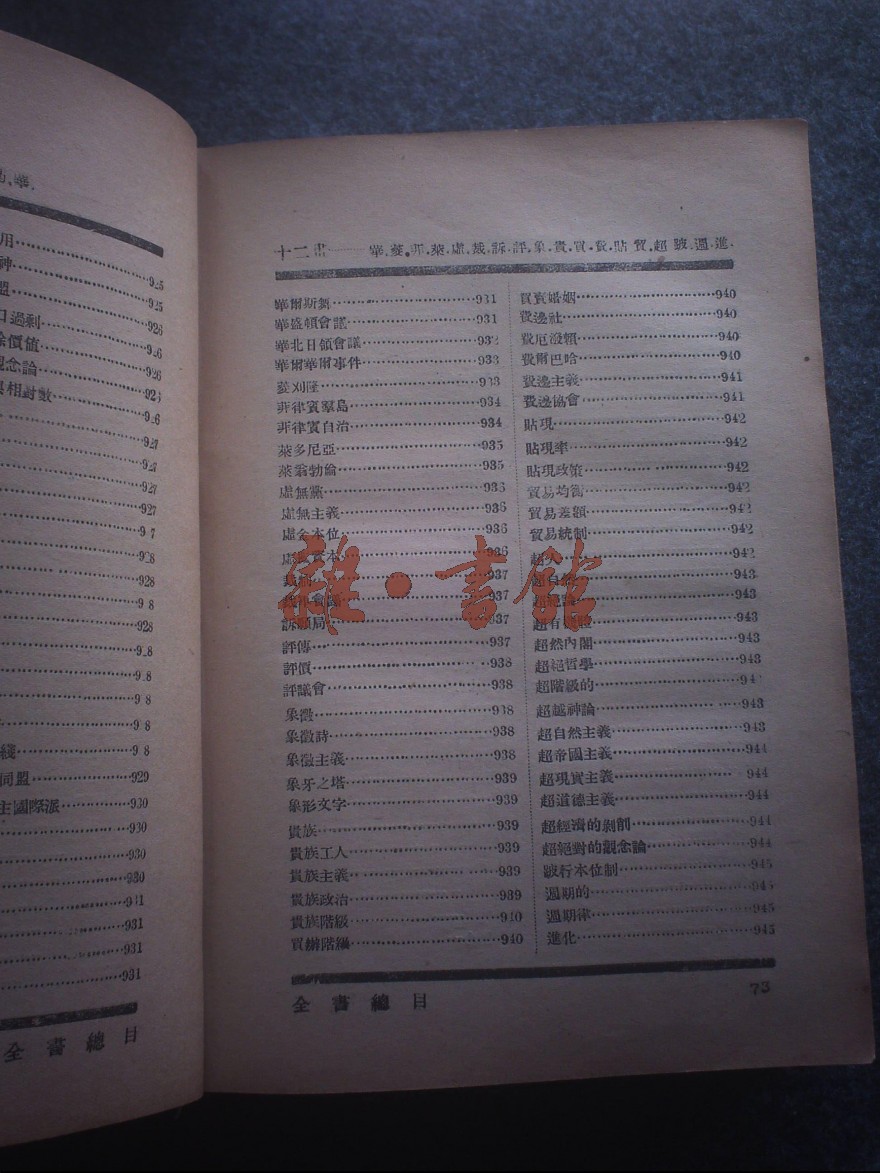 用 925
神 925
盟 926
口過剩 926
餘價值 926
觀念論 926
與相對數 926
927
927
927
927
9 7
9 8
928
9 8
928
9 8
9 8
9 8
9 8
綫 9 8
同盟 929
主國際派 930
930
930
930
931
931
931
931
全書總目
十二畫 華.菱.菲.萊.虛.裁.訴.評.象.貴.買.費.貼.貿.超.跛.週.進.
華爾斯 931
華盛頓會議 931
華北日領會議 932
華爾華爾事件 933
菱刈隆 933
菲律賓羣島 934
菲律賓自治 934
萊多尼亞 935
萊翁勃論 935
虛無黨 935
虛無主義 936
虛金本位 936
虛 資本 936
裁 937
裁 會議 937
訴願局 937
評傳 937
評價 938
評議會 938
象徵 938
象徵詩 938
象徵主義 938
象牙之塔 939
象形文字 939
貴族 939
貴族工人 939
貴族主義 939
貴族政治 939
貴族階級 940
買辦階級 940
買賣婚姻 940
費邊社 940
費厄潑賴 940
費爾巴哈 940
費邊主義 941
費邊協會 941
貼現 942
貼現率 942
貼現政策 942
貿易均衡 942
貿易差額 942
貿易統制 942
超人 942
超自然 943
超 943
超有 943
超然內閣 943
超絕哲學 943
超階級的 943
超越神論 943
超自然主義 943
超帝國主義 944
超現實主義 944
超道德主義 944
超經濟的剝削 944
超絕對的觀念論 944
跛行本位制 945
週期的 945
週期律 945
進化 945
全書總目 73
雜·書館